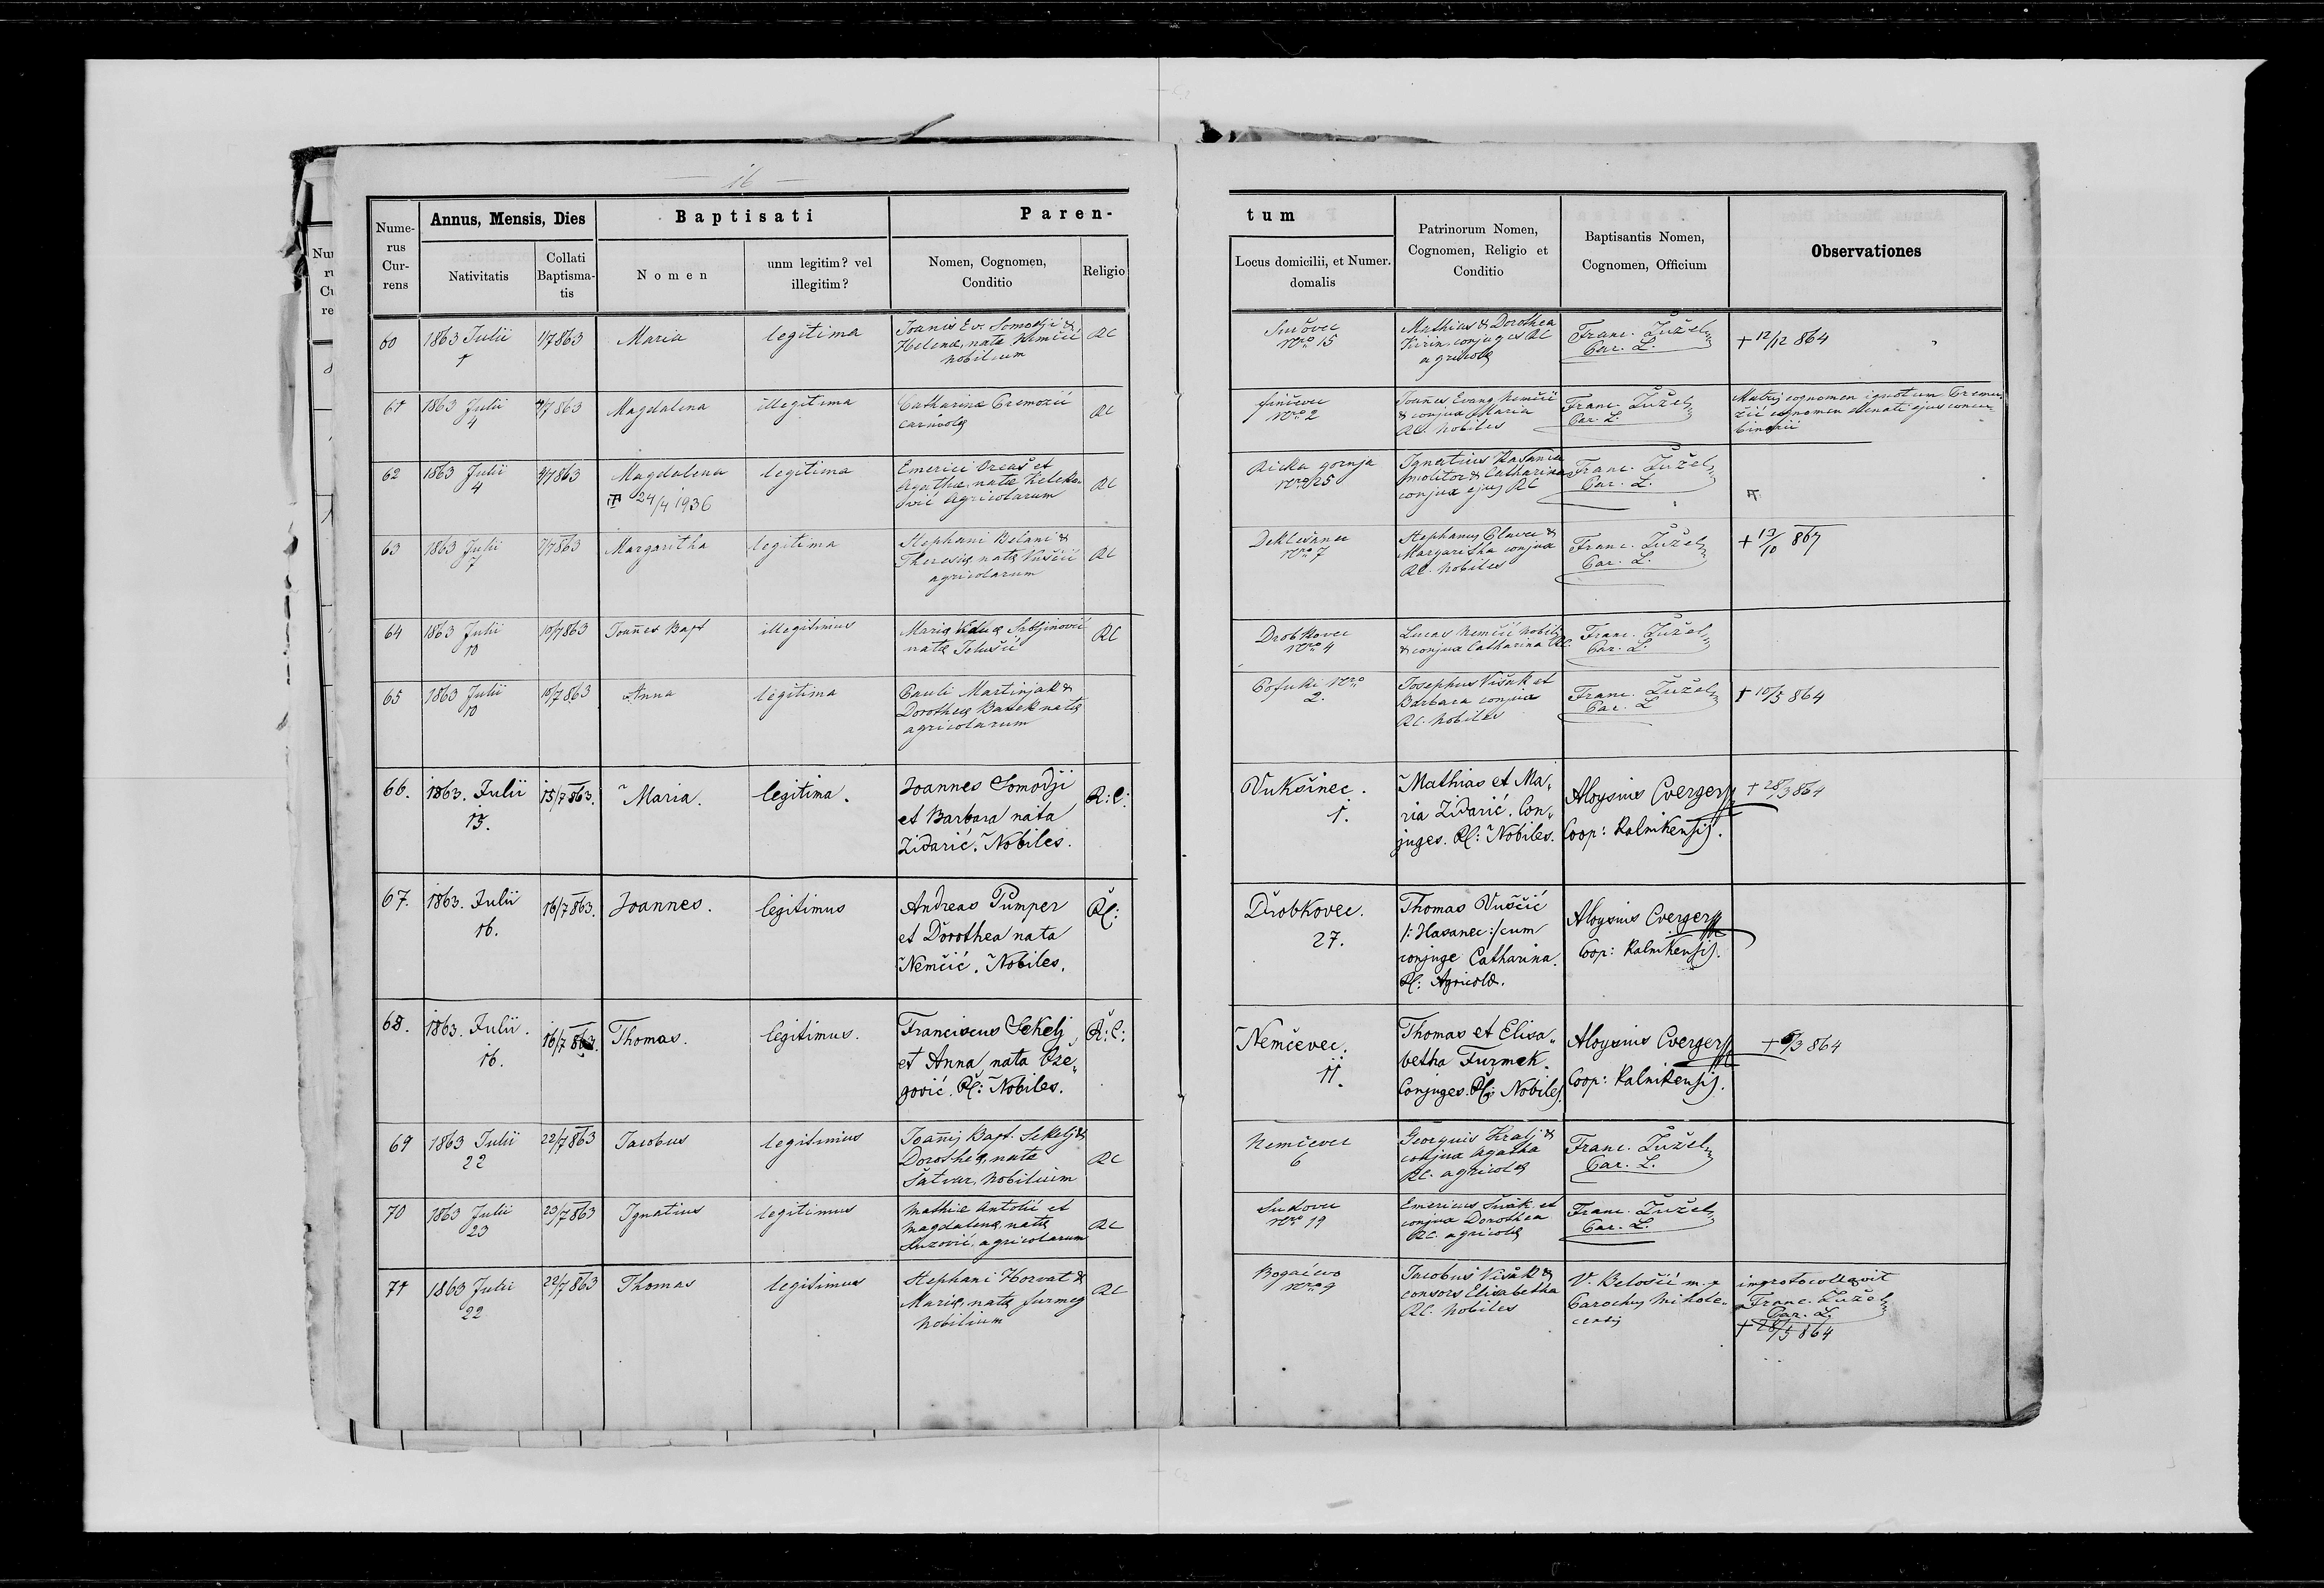 16
Numerus Currens
Annus, Mensis, Dies
Nativitatis
Collati Baptismatis
Baptisati
Nomen
unm legitim? vel illegitim?
Paren-
Nomen, Cognomen, Conditio
Religio
tum
Locus domicilii, et Numer. domalis
Patrinorum Nomen, Cognomen, Religio et Conditio
Baptisantis Nomen, Cognomen, Officium
Observationes
60 1863 Julii 1/7863 Maria legitima
Joanis Ev. Somodji &
Helenæ, nata Nemčić
nobilium
RC
nro 15
Mathias & Dorothea
conjuges RC
agricolæ
Franc. Žužel
Par. L.
+ 12/12 864
61 1863 Julii 4 4/7863 Magdalena illegitima
Catharinæ Premožić
RC
nro 2
Joañes Evang Nemčić
& conjux Maria
RC. nobiles
Franc. Žužel
Par. L.
Matris cognomen ignotum
62 1863 Julii 4 4/7863 Magdalena legitima
24/4 1936
Emerici Oreač et
Agathæ, nata
agricolarum
RC
Rieka gornja
nro 25
Ignatius
molitor & Catharina
conjux ejus RC
Franc. Žužel
Par. L.
63 1863 Julii 7 7/7863 Margaritha legitima
Stephani Belani &
Theresiæ, natæ Vuščić
agricolarum
RC
Deklešanec
nro 7
Stephanus &
Margaritha conjux
RC. nobiles
Franc. Žužel
Par. L.
+ 13/10 867
64 1863 Julii 10 10/7863 Joañes Bapt illegitimus
Mariæ Viduæ
natæ
RC
Drobkovec
nro 4
Lucas Nemčić nobilis
& conjux Catharina RC.
Franc. Žužel
Par. L.
65 1863 Julii 10 10/7863 Anna legitima
Pauli Martinjak &
Dorotheæ natæ
agricolarum
RC
Pofuki nro
2.
Josephus Višak et
Barbara conjux
RC. nobiles
Franc. Žužel
Par. L.
+ 10/5 864
66. 1863. Julii 15. 15/7 863. Maria. legitima.
Joannes Somodji
et Barbara nata
Zidarić. Nobiles.
R:C:
Vukšinec.
1.
Mathias et Ma-
ria Zidarić. Con-
juges. RC: Nobiles.
Aloysius Cverger
Coop: Kalnikensis.
+ 28/3 864
67. 1863. Julii 16. 16/7 863. Joannes. legitimus
Andreas Pumper
et Dorothea nata
Nemčić. Nobiles.
RC:
Drobkovec.
27.
Thomas Vuščić
/: Hasanec :/ cum
conjuge Catharina.
RC: Agricolæ.
Aloysius Cverger
Coop: Kalnikensis.
68. 1863. Julii. 16. 16/7 863. Thomas. legitimus.
Franciscus Sekelj
et Anna, nata Oze-
gović. RC: Nobiles.
R:C:
Nemčevec.
11.
Thomas et Elisa-
betha Furmek.
Conjuges. RC: Nobiles.
Aloysius Cverger
Coop: Kalnikensis.
+ 6/3 864
69 1863 Julii 22 22/7863 Jacobus legitimus
Joañis Bapt. Sekelj &
Dorotheæ, nata
Šatvar, nobilium
RC
Nemčevec
6
Georgius Kralj &
conjux Agatha
RC. agricolæ
Franc. Žužel
Par. L.
70 1863 Julii 23 23/7863 Ignatius legitimus
Mathiæ Antolić et
Magdalenæ, natæ
agricolarum
RC
Sudovec
nro 19
Emericus et
conjux Dorothea
RC. agricolæ
Franc. Žužel
Par. L.
71 1863 Julii 22 22/7863 Thomas legitimus
Stephani Horvat &
Mariæ, natæ Furmeg
Nobilium
RC
Bogačevo
nro 9
Jacobus Višak &
consors Elisabetha
RC. nobiles
V. Belošić m.p
Parochus
improtocollavit
Franc. Žužel
Par. L.
+ 28/5 864